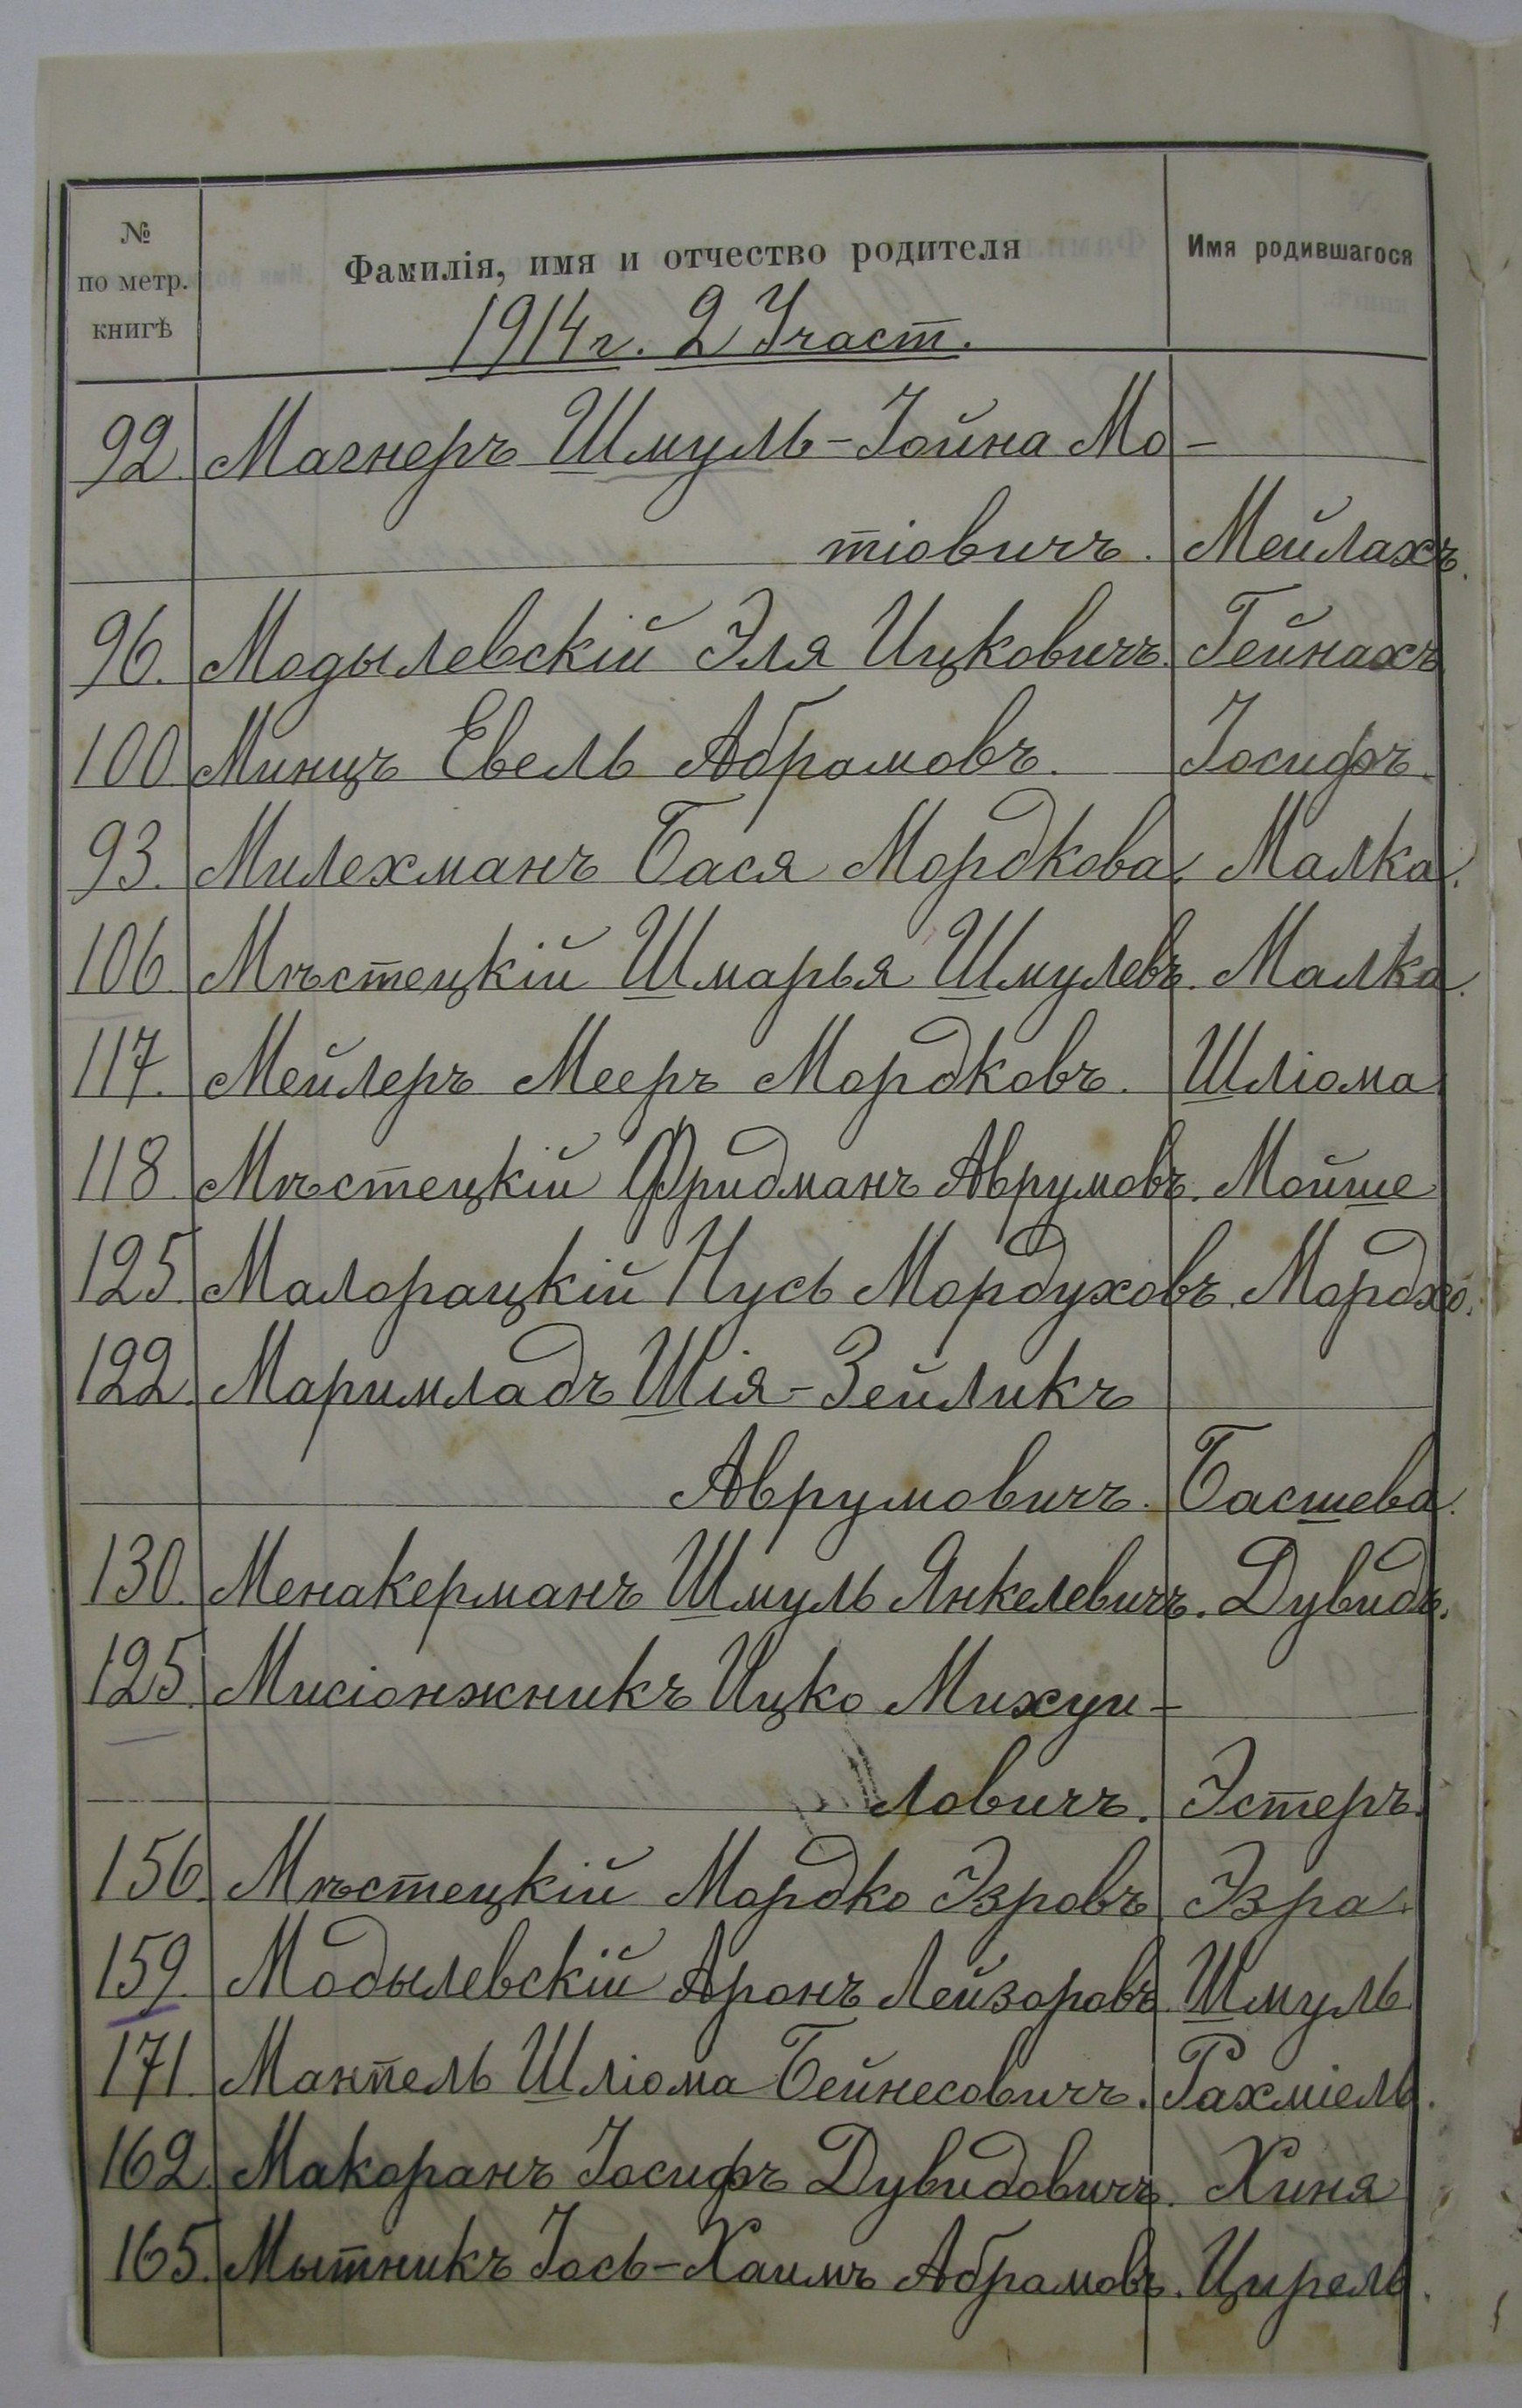 № по метр. книгѣ Фамилія, имя и отчество родителя Имя родившагося
1914 г. 2 Участ.
92. Магнеръ Шмуль-Іойна Мо-
тіовичъ. Мейлахъ.
96. Модылевскій Эля Ицковичъ. Гейнахъ
100 Минцъ Евель Абрамовъ. Іосифъ.
93. Милехманъ Бася Мордкова. Малка.
106 Мѣстецкій Шмарья Шмулевъ. Малка.
117. Мейлеръ Мееръ Мордковъ. Шліома
118 Мѣстецкій Фридманъ Аврумовъ. Мойше
125. Малорацкій Нусь Мордуховъ. Мордхо.
122. Маримладъ Шія-Зейликъ
Аврумовичъ. Басшева.
130. Менакерманъ Шмуль Янкелевичъ. Дувидъ.
125. Мисіонжникъ Ицко Михуи-
ловичъ. Эстеръ.
156. Мѣстецкій Мордко Эзровъ Эзра.
159. Модылевскій Аронъ Лейзоровъ Шмуль
171. Мантель Шліома Бейнесовичъ. Рахміель.
162. Макоранъ Іосифъ Дувидовичъ. Хиня
165. Мытникъ Іось-Хаимъ Абрамовъ. Цирель.